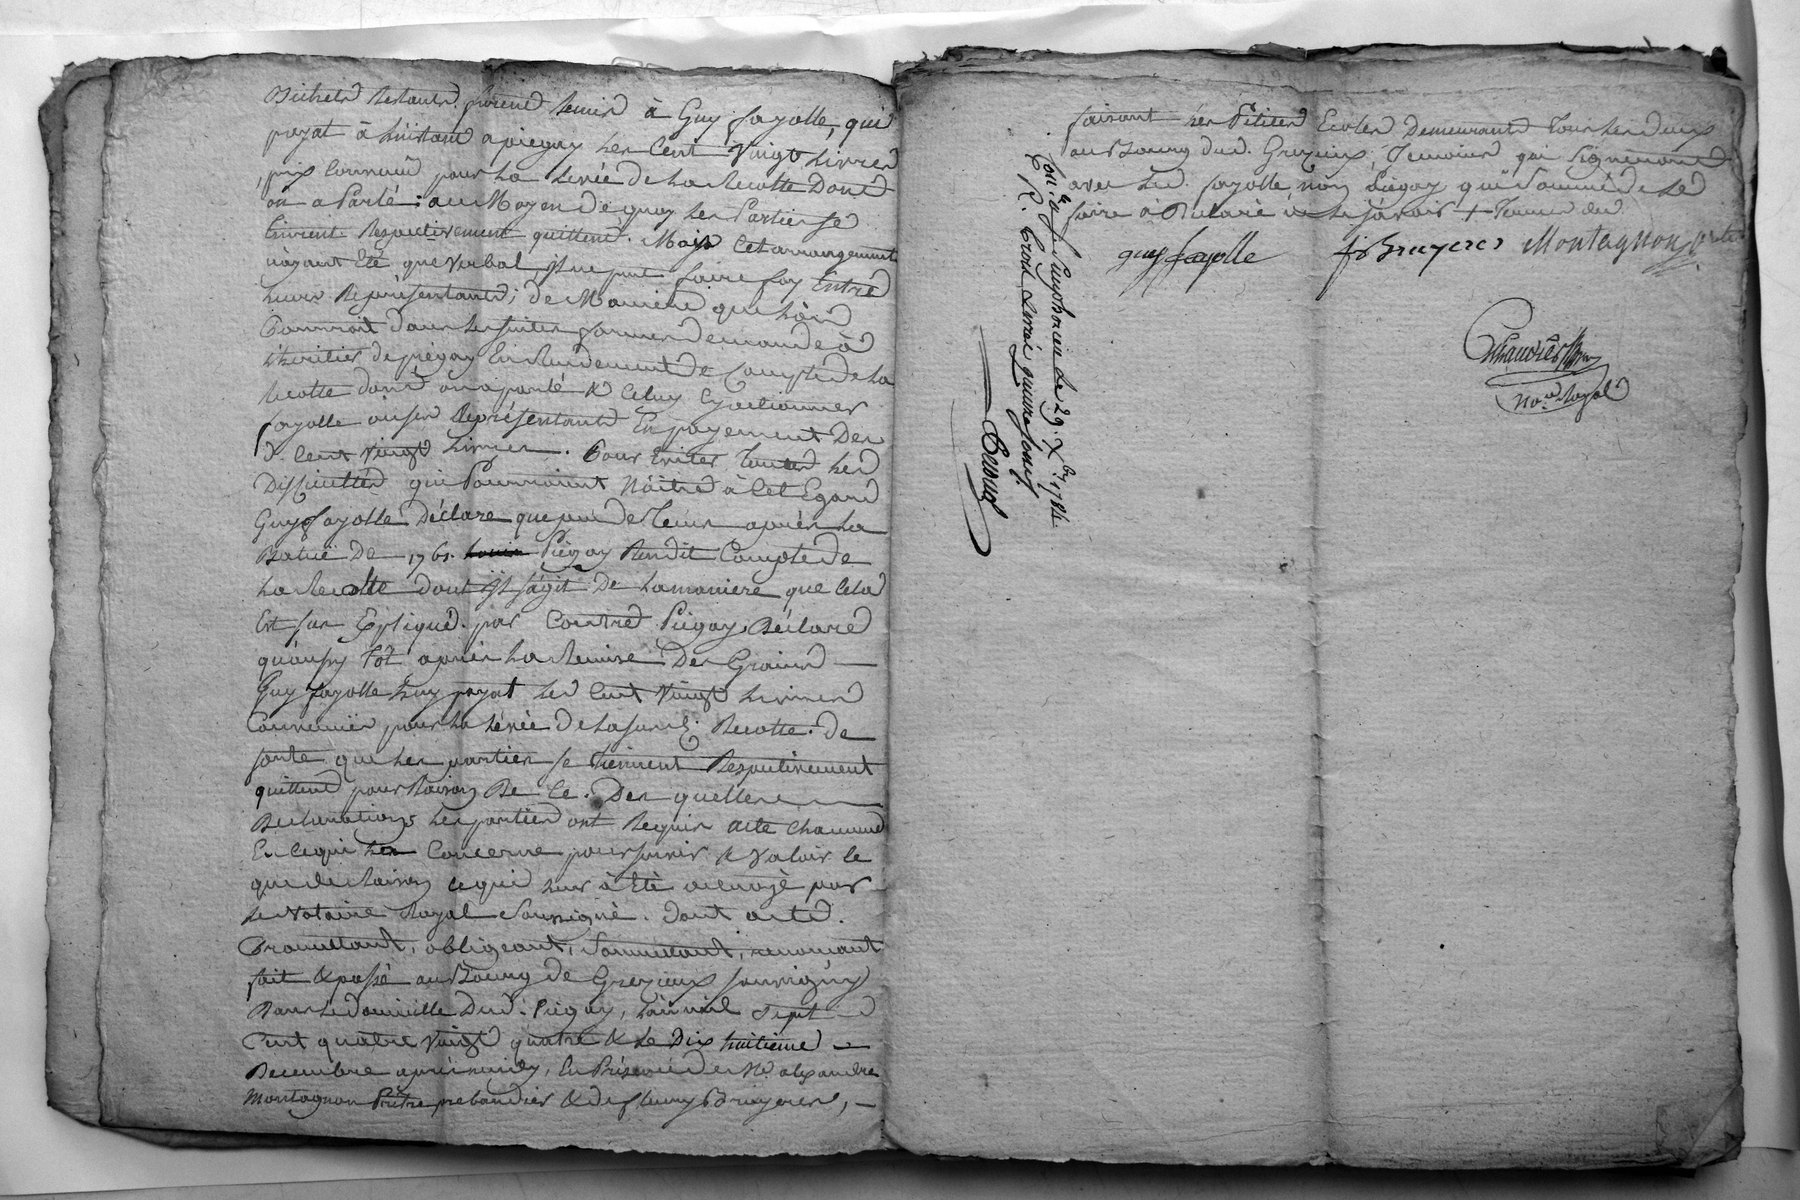 Bichets Restants furent remis à Guy fayolle, qui
payat à linstant a piegay les Cent Vingt Livres
prix Convenu pour la levée de la Recotte Dont
on a Parlé; au Moyen de quoy les Parties se
tinrent Respectivement quittens. Mais Cet arrangement
nayant Eté que verbal, il ne peut faire foy Entre
leurs Représentants; de Maniere que lon
Pourroit dans les suites former demande à
lheritier de piégay En Rendement de Compte de la
Recotte dont on a parlé & Celuy cy actionner
fayolle ou ses Représentants En payement Des
d. Cent Vingt Livres. Pour Eviter Toutes les
Difficultés qui Pourroient Naitre à Cet Egard
Guy fayolle Déclare que peu de Tems après la
Batue De 1761. Piégay Rendit Compte de
la Recolte dont Il sagit De la maniere que Cela
Est sus Expliqué. par Contre Piégay Déclare
quaussy tôt après la Remise Des Grains
Guy fayolle luy payat les Cent Vingt Livres
Convenües pour la levée de la susd. Recotte. de
sorte que les parties se tiennent Respectivement
quittens pour Raison De Ce. Des quelles
Declarations les parties ont Requis acte Chacune
En ce qui les Concerne pour servir & Valoir Ce
que de Raison ce qui leur à Eté octroyé par
le Notaire Royal Soussigné. Dont acte.
Promettant, obligeant, Soumettant, renonçant
fait & passé au Bourg de Grezieux
Dans le domicille Dud. Piégay, lan mil Sept
Cent quatre Vingt quatre & le Dix huitieme
Decembre après midy, En Présence de Mr. alexandre
Montagnon Prêtre prebandier & de fleury Bruyeres,
faisant les Petites Ecoles Demeurants Tous les deux
au Bourg dud. Grezieux, Temoins qui Signeront
avec led. fayolle non Piegay qui Sommé de le
faire à Déclaré ne le savoir
guy fayolle
f Bruyeres
Montagnon ptre
no.re Royal
Con.lé a St. Simphorien le 29. Xbre 1784
R. trois Livres quinze sous